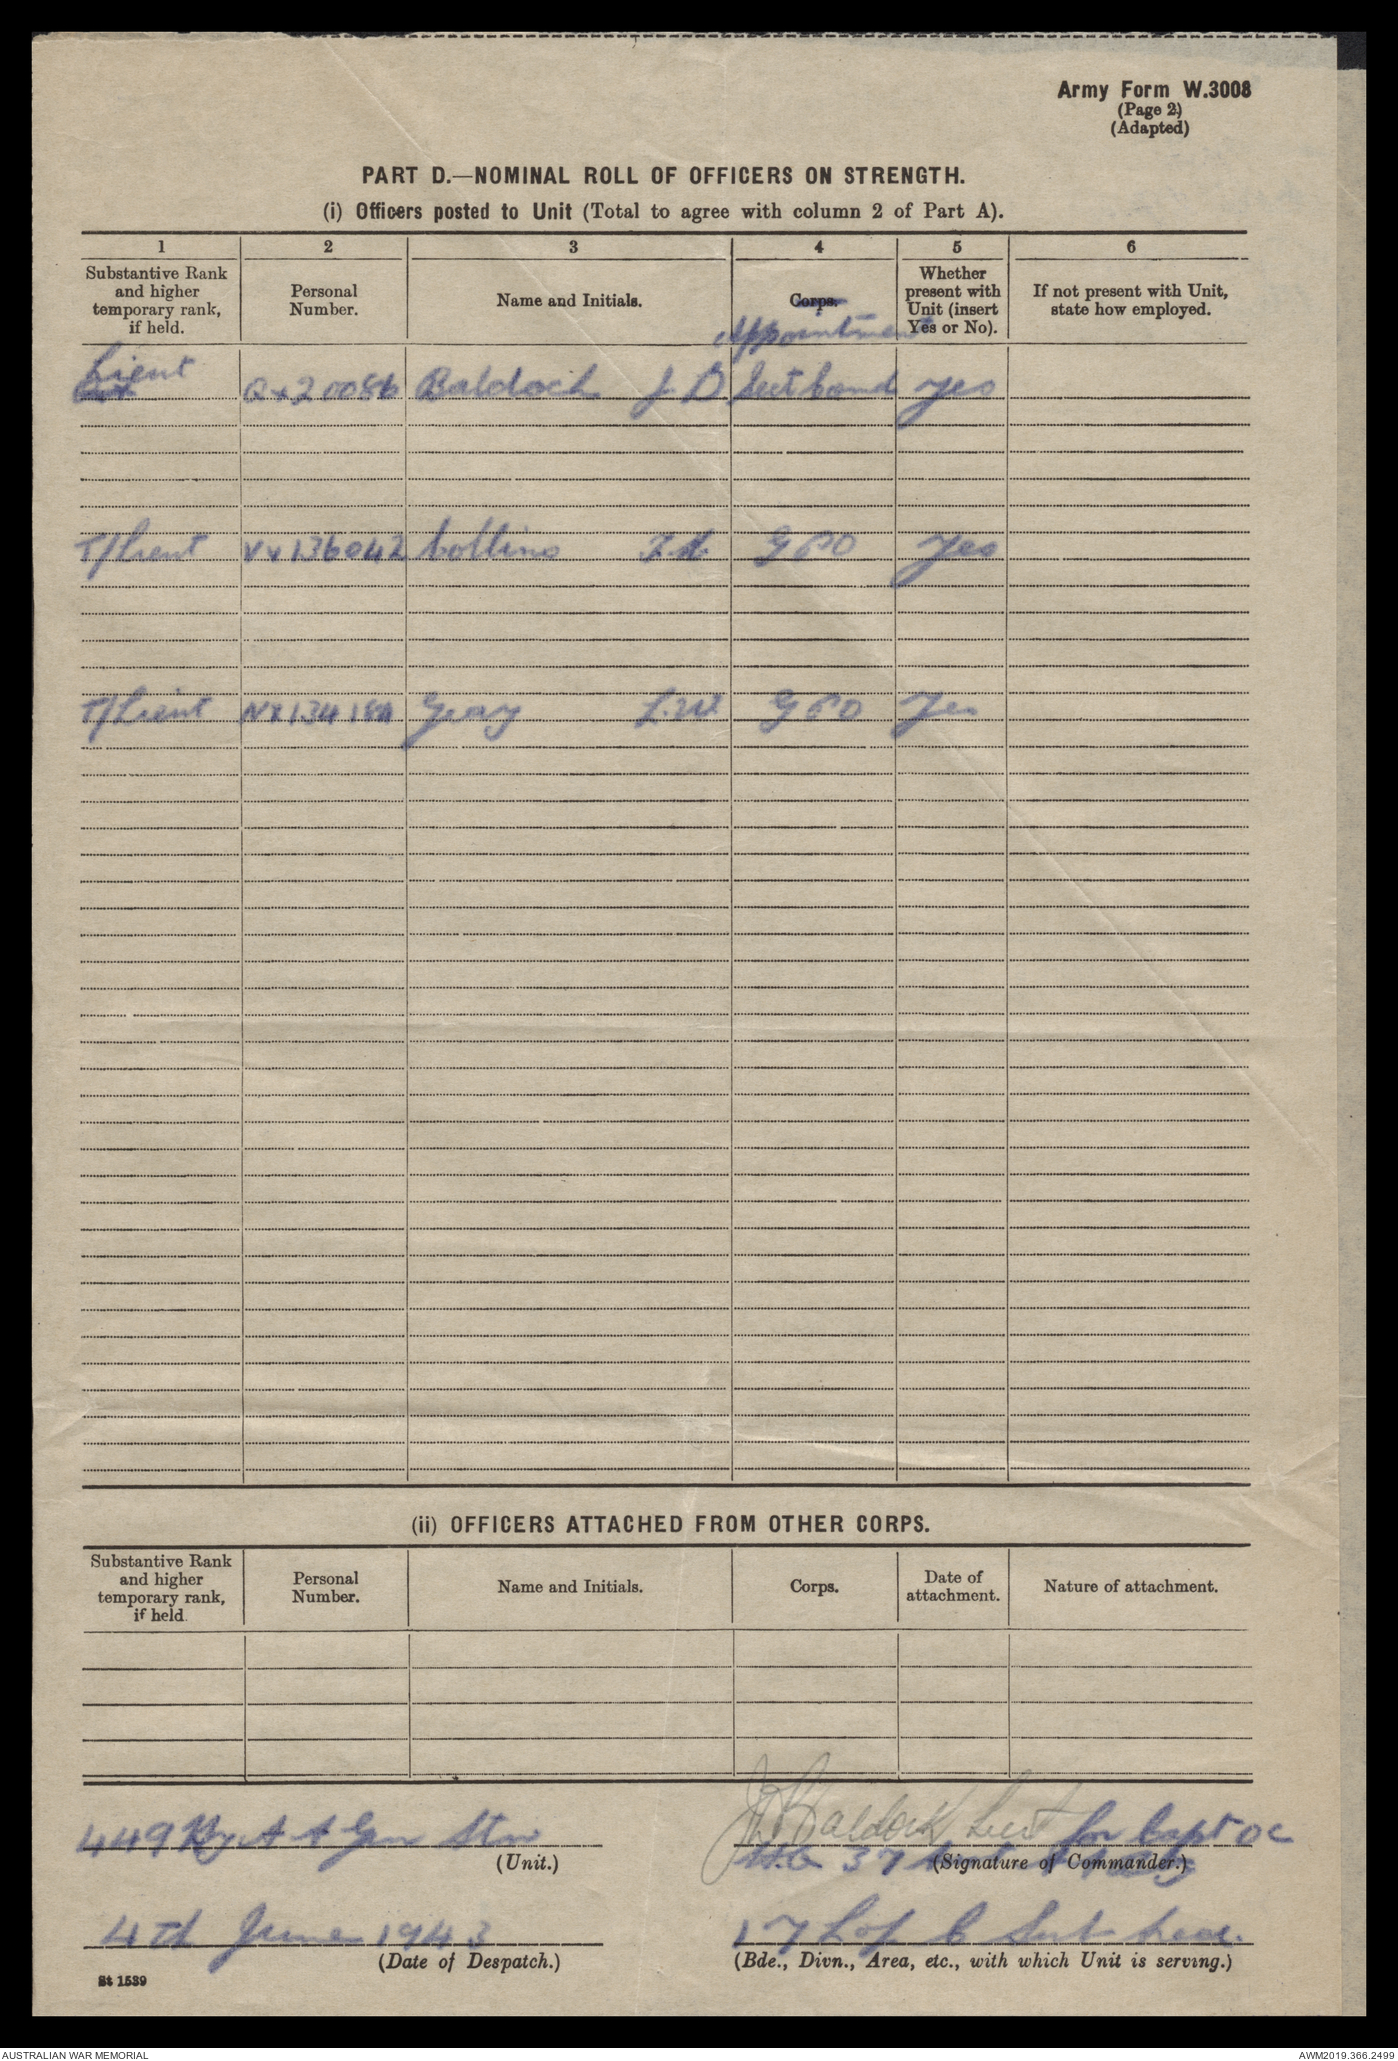 Army Form W.3008
(Page 2)
(Adapted)
PART D.—NOMINAL ROLL OF OFFICERS ON STRENGTH.
(i) Officers posted to Unit (Total to agree with column 2 of Part A).
1 2 3 4 5 6
Substantive Rank and higher temporary rank, if held. Personal Number. Name and Initials. Corps. Appointment Whether present with Unit (insert Yes or No). If not present with Unit, state how employed.
Lieut Qx20086 Baldock J.D Sect Comd Yes
T/Lieut Vx136042 Collins GPO Yes
T/Lieut NX134184 Gray L.W. GPO Yes
(ii) OFFICERS ATTACHED FROM OTHER CORPS.
Substantive Rank and higher temporary rank, if held. Personal Number. Name and Initials. Corps. Date of attachment. Nature of attachment.
449 Hy A A Gun Stn JD Baldock Lieut for Capt OC
(Unit.) 37 (Signature of Commander.)
4th June 1943 17 L of C Sub Area.
(Date of Despatch.) (Bde., Divn., Area, etc., with which Unit is serving.)
St 1539
AUSTRALIAN WAR MEMORIAL AWM2019.366.2499